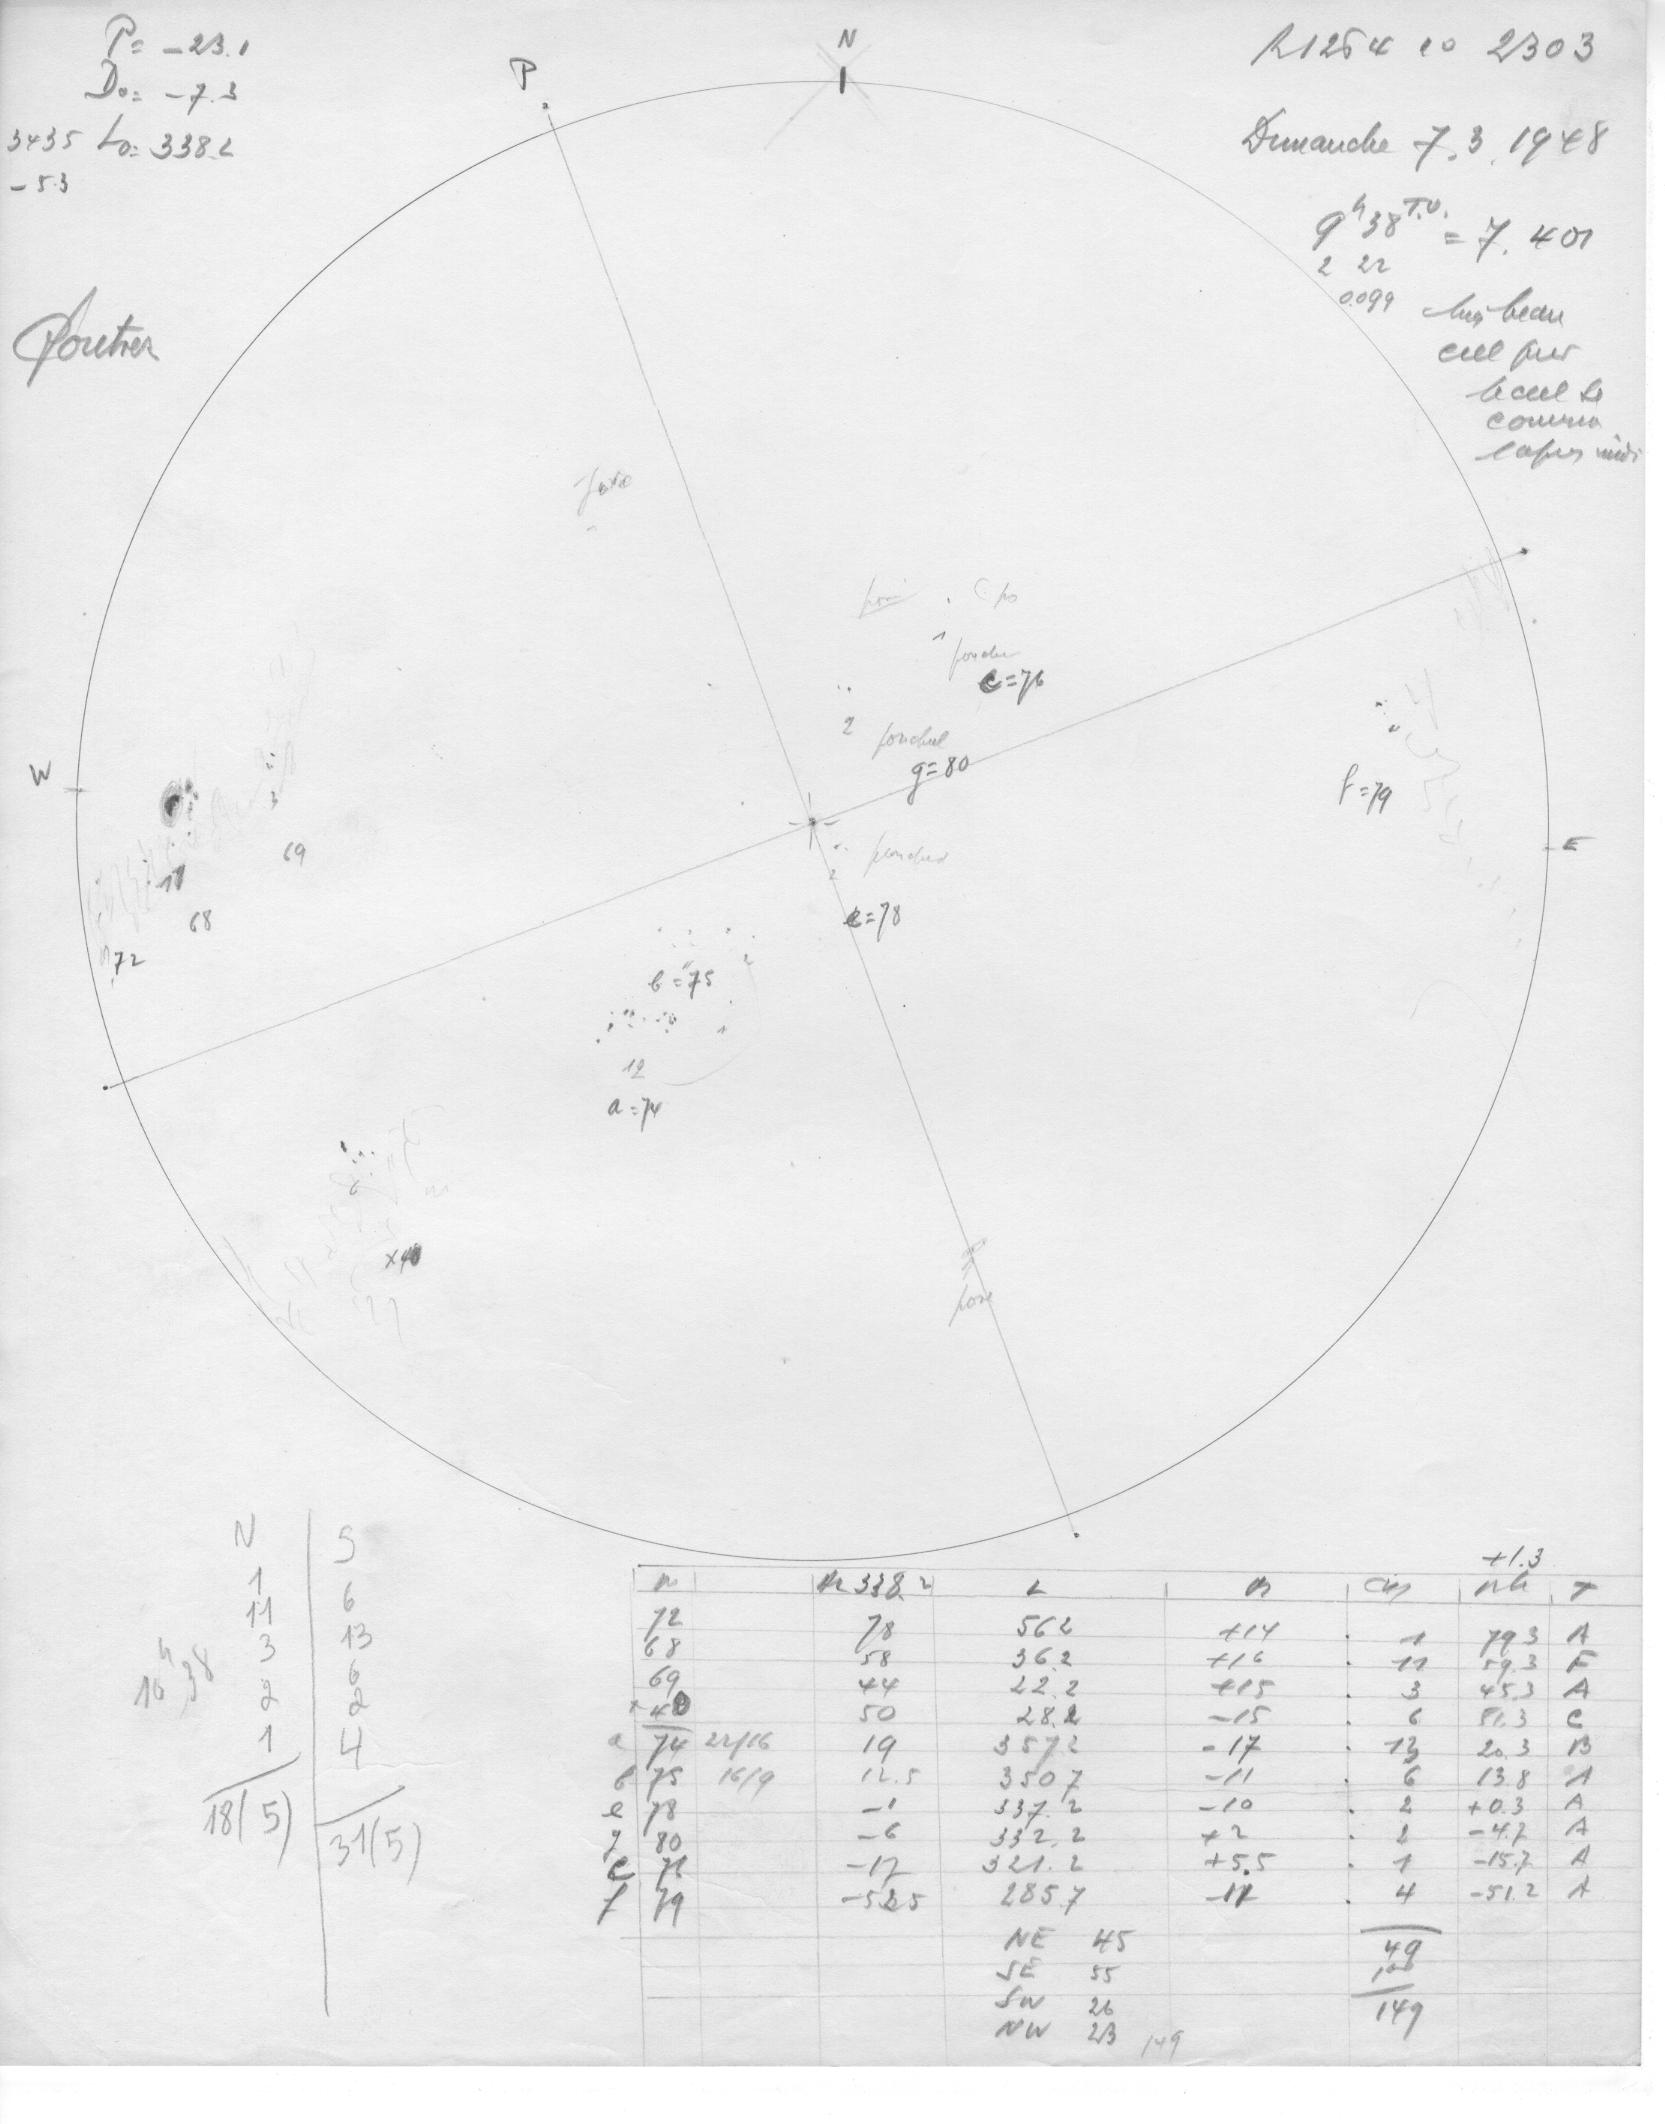 P= -23.1
D₀= -7.3
3435 L₀= 338.2
-5.3
N
P
2303
Dimanche 7.3.1948
9h38 T.U. = 7.401
2 22
0.099
beau
ciel pur
le ciel se
Poutrer
pore
c=76
2
g=80
W
E
3
69
11
68
72
f=79
2
e=78
2
b=75
1
12
a=74
6
x40
pore
N | S
1 | 6
11 | 13
3 | 6
2 | 2
1 | 4
18(5) | 31(5)
16h38
+1.3
338.2 L B
72 78 562 +14 . 1 79.3 A
68 58 36.2 +16 . 11 59.3 F
69 44 22.2 +15 . 3 45.3 A
+40 50 28.2 -15 . 6 51.3 C
a 74 22/16 19 357.2 -17 . 13 20.3 B
b 75 16/9 12.5 350.7 -11 6 13.8 A
e 78 -1 337.2 -10 . 2 +0.3 A
g 80 -6 332.2 +2 . 2 -4.7 A
c 76 -17 321.2 +5.5 . 1 -15.7 A
f 79 -52.5 285.7 -11 . 4 -51.2 A
NE 45 49
SE 55 100
SW 26 149
NW 23 149